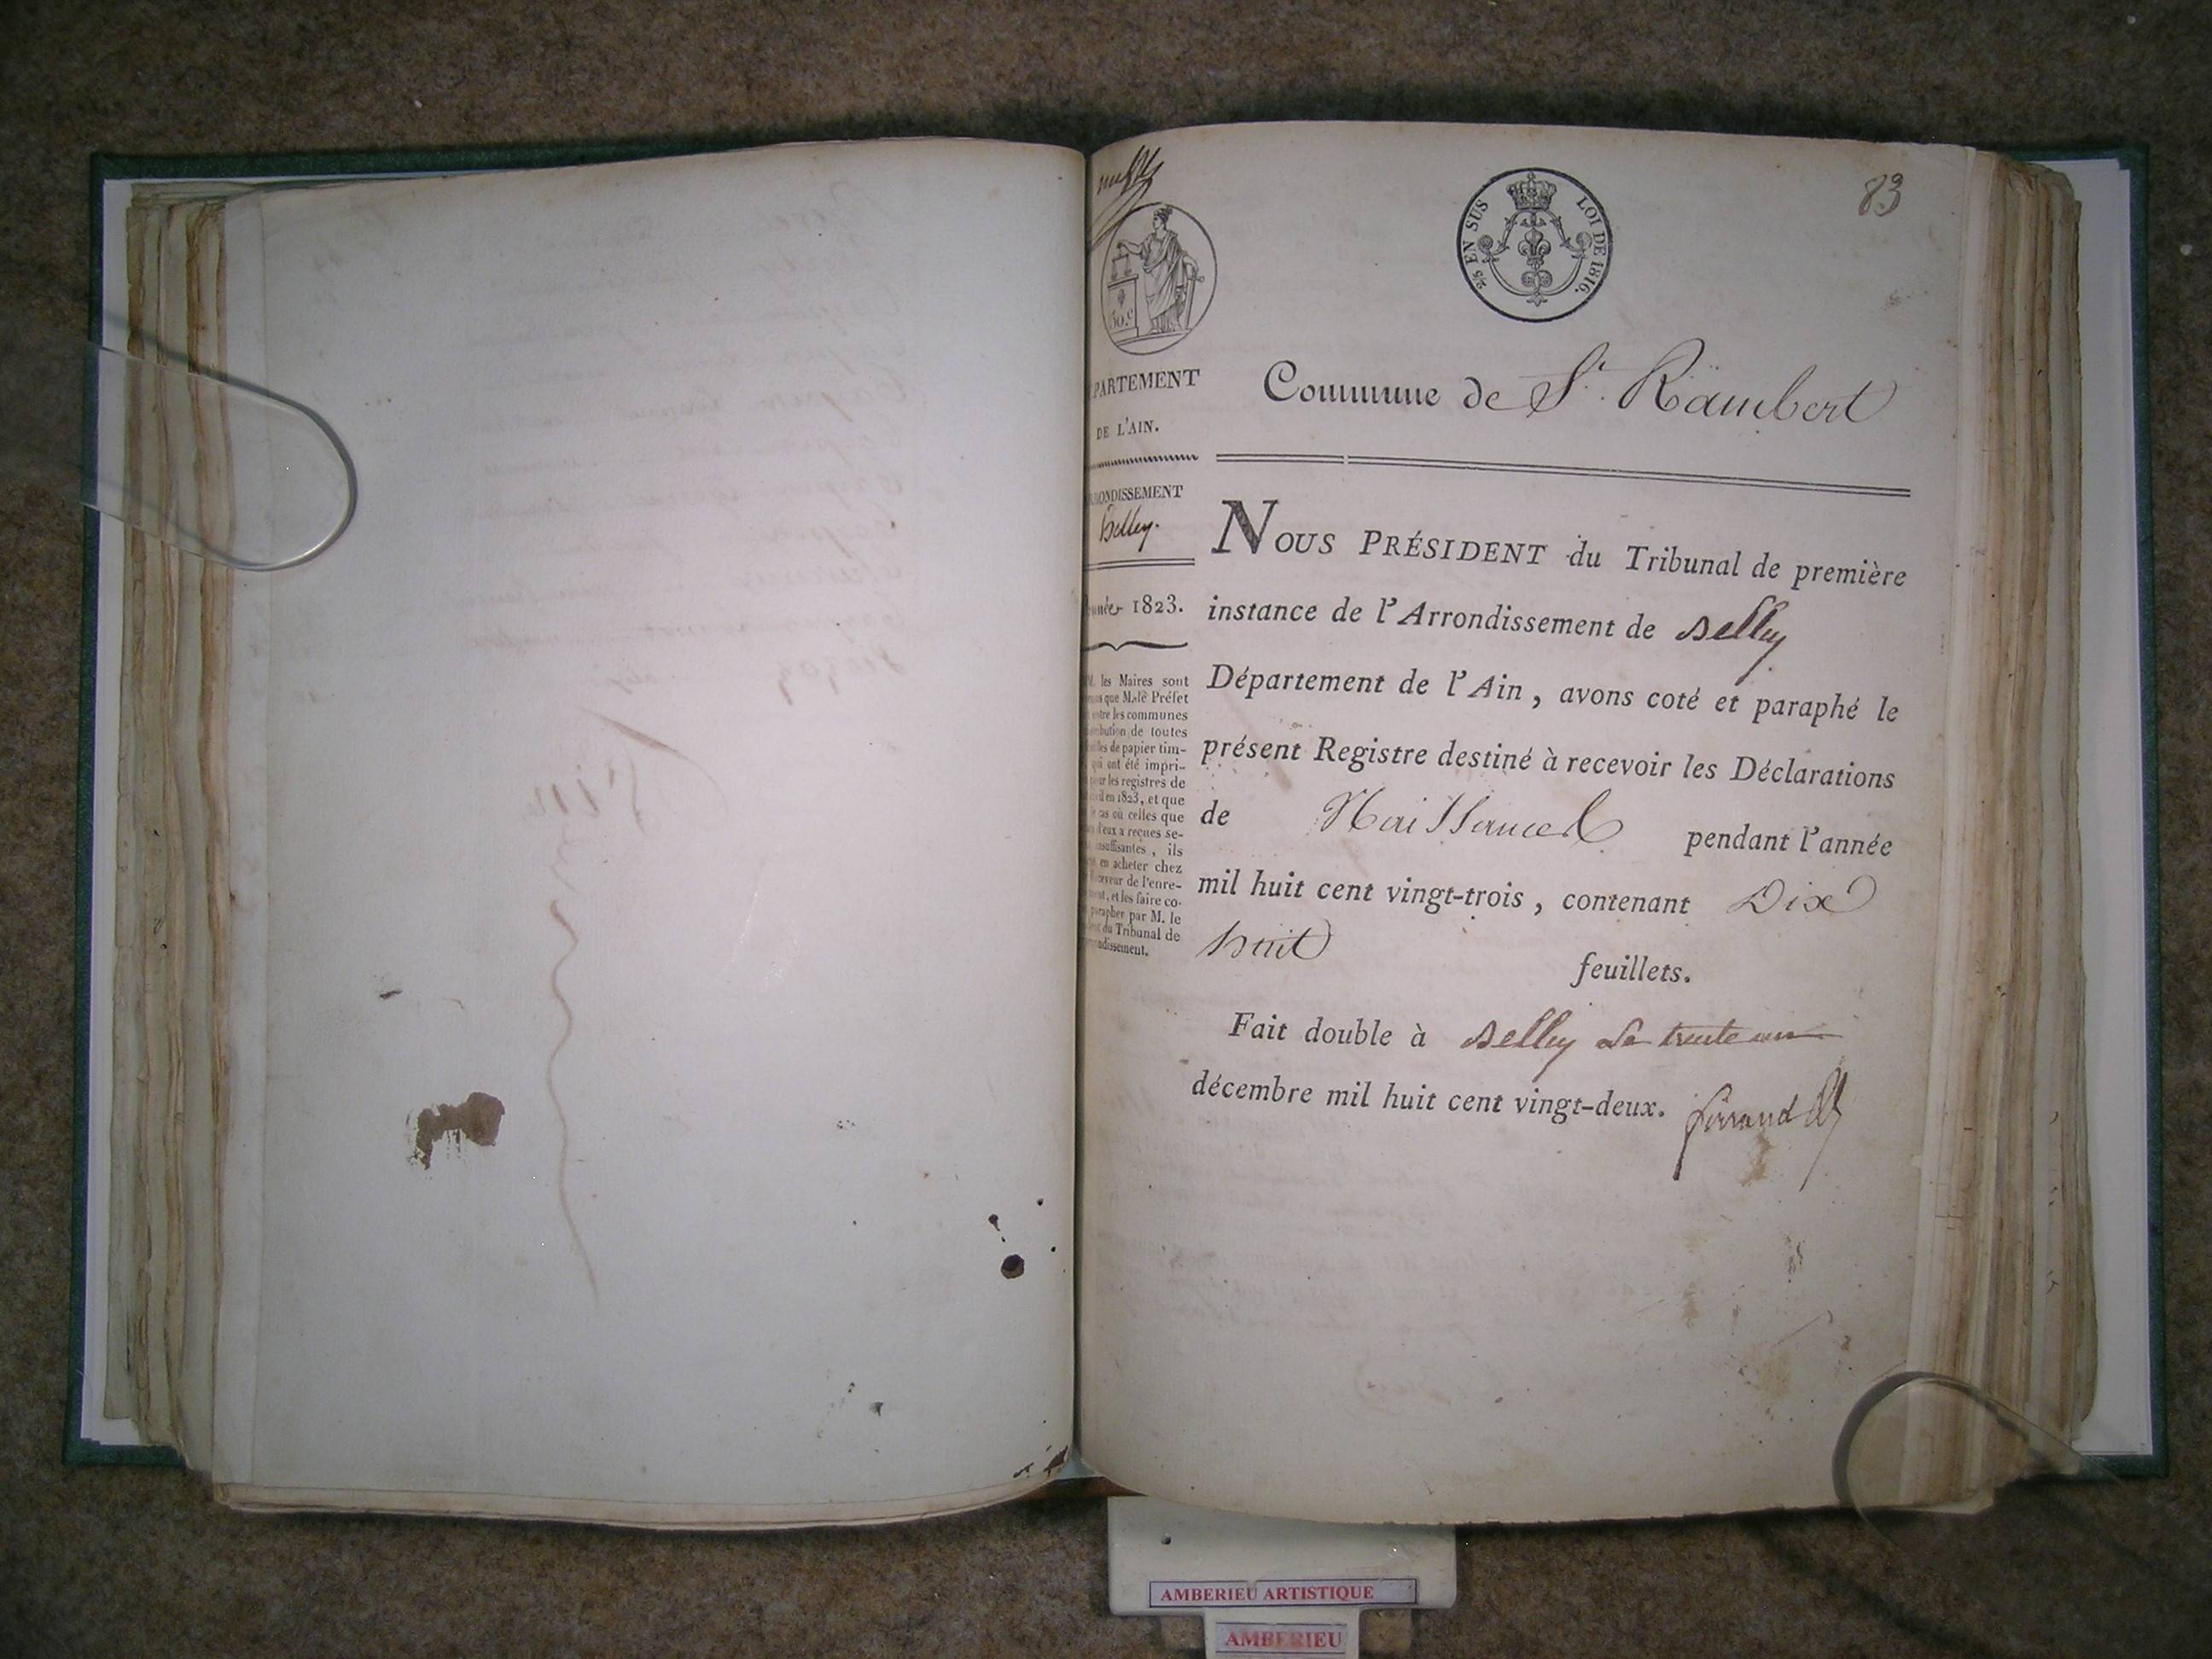 83
2/5 EN SUS LOI DE 1816.
30.c
PARTEMENT
DE L'AIN.
ONDISSEMENT
Belley.
1823.
M. les Maires sont
que M. le Préfet
entre les communes
bution de toutes
lles de papier tim-
qui ont été impri-
our les registres de
en 1823, et que
cas où celles que
d'eux a reçues se-
insuffisantes, ils
en acheter chez
ceveur de l'enre-
ment, et les faire co-
parapher par M. le
du Tribunal de
ondissement.
Commune de St. Rambert
NOUS PRÉSIDENT du Tribunal de première
instance de l'Arrondissement de Belley
Département de l'Ain, avons coté et paraphé le
présent Registre destiné à recevoir les Déclarations
de Naissances pendant l'année
mil huit cent vingt-trois, contenant Dix
huit feuillets.
Fait double à Belley Le trente un
décembre mil huit cent vingt-deux.
AMBERIEU ARTISTIQUE
AMBERIEU